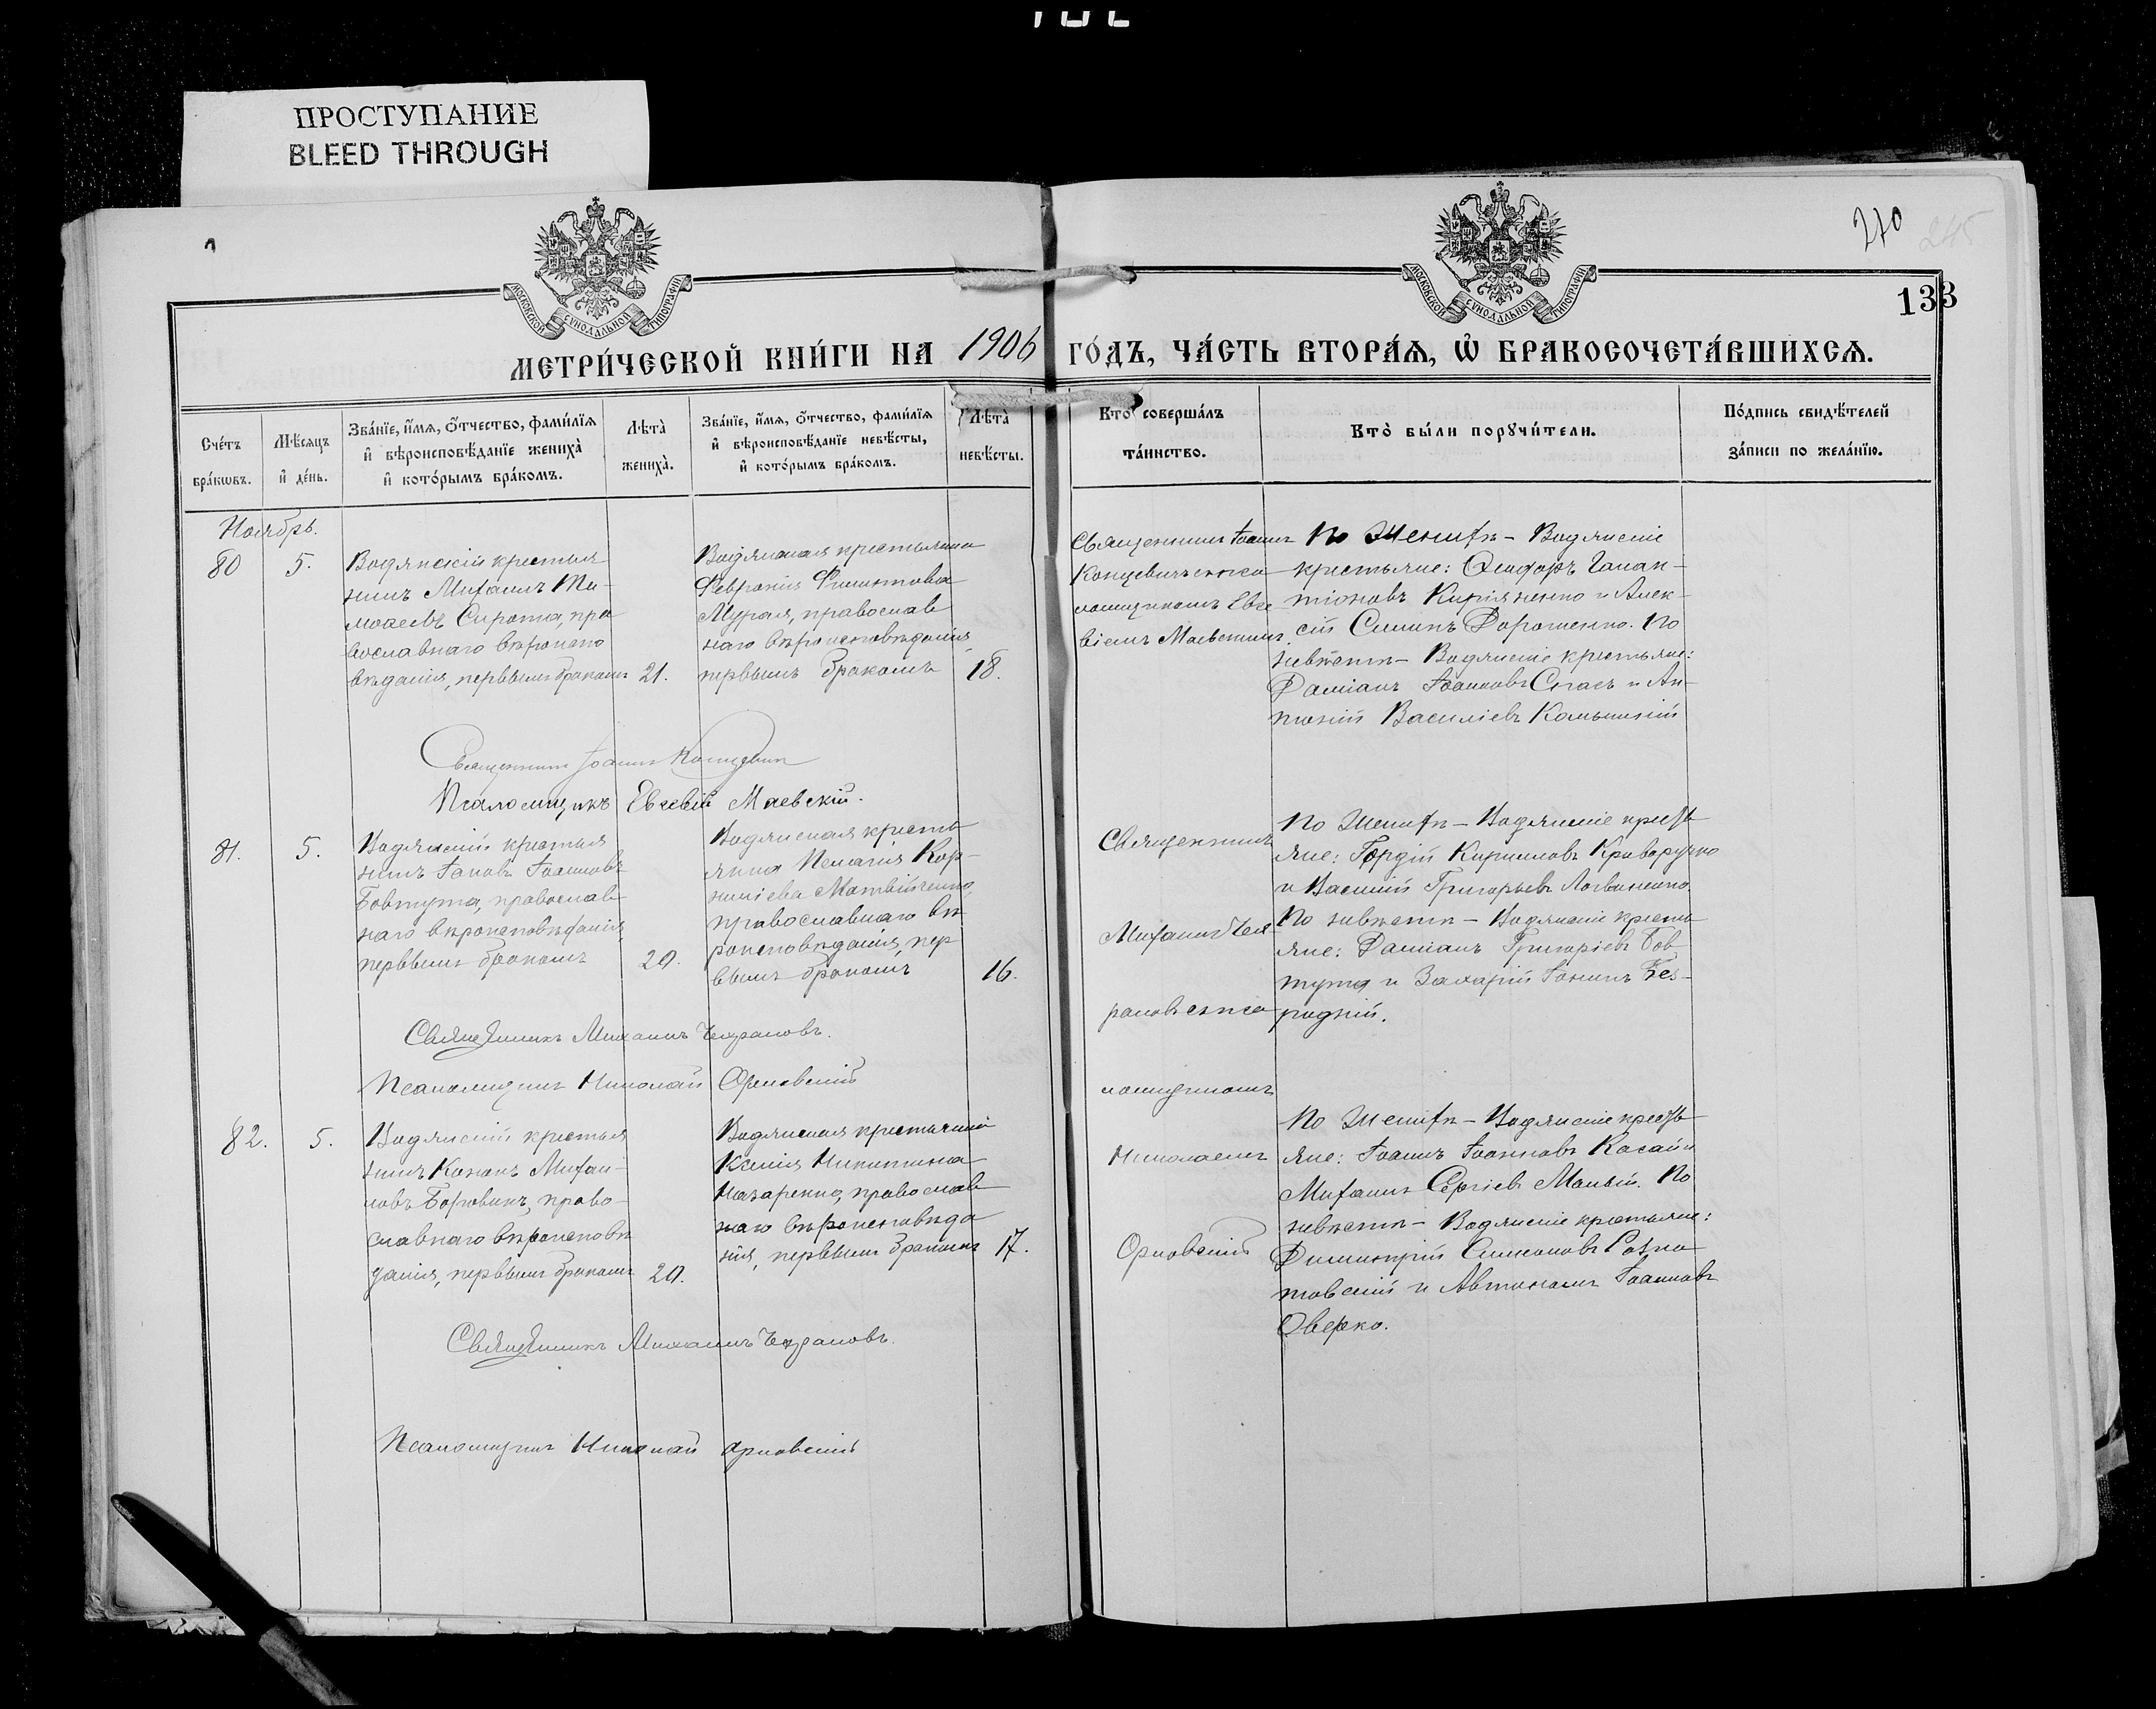 ПРОСТУПАНИЕ
BLEED THROUGH
МОСКОВСКОЙ СѴНОДАЛЬНОЙ ТИПОГРАФІИ
МОСКОВСКОЙ СѴНОДАЛЬНОЙ ТИПОГРАФІИ
270
245
133
МЕТРИ́ЧЕСКОЙ КНИ́ГИ НА 1906 ГО́ДЪ, ЧА́СТЬ ВТОРА́Ѧ, Ѡ҆ БРАКОСОЧЕТА́ВШИХСѦ.
Сче́тъ бра́кѡвъ.
Мѣ́сяцъ и҆ де́нь.
Зва́нїе, и҆́мѧ, ѻ҆́тчество, фами́лїѧ
и҆ вѣроисповѣ́данїе жениха̀
и҆ кото́рымъ бра́комъ.
Лѣта̀ жениха̀.
Зва́нїе, и҆́мѧ, ѻ҆́тчество, фами́лїѧ
и҆ вѣроисповѣ́данїе невѣ́сты,
и҆ кото́рымъ бра́комъ.
Лѣта̀ невѣ́сты.
Кто̀ соверша́лъ та́инство.
Кто̀ бы́ли порꙋчи́тели.
По́дпись свидѣ́телей
за́писи по жела́нїю.
Ноябрь.
80
5.
Водянскій крестья
нинъ Михаилъ Ти-
моѳеевъ Сирота, пра
вославнаго вѣроиспо
вѣданія, первымъ бракомъ
21.
Водянская крестьянка
Февронія Филиптова
Мурая, православ
наго вѣроисповѣданія
первымъ бракомъ
18.
Священникъ Іоаннъ
Концевичъ съ пса
ломщикомъ Евсе
віемъ Маевскимъ.
По женихѣ - Водянскіе
крестьяне: Ѳеодоръ Галак-
тіоновъ Кирияненко и Алек-
сій Дорошенко. По
невѣстѣ - Водянскіе крестьяне:
Даміанъ Іоанновъ Спасъ и Ан-
тоній Василіевъ
Священникъ Іоаннъ Концевичъ
Псаломщикъ Евсевій Маевскій.
81.
5.
Водянскій крестья
нинъ Іаковъ Іоанновъ
Бовтута, православ
наго вѣроисповѣданія,
первымъ бракомъ
20.
Водянская кресть
янка Пелагія Кор-
ниліева Матвійченко,
православнаго вѣ
роисповѣданія, пер
вымъ бракомъ
16.
Священникъ
Михаилъ Чех
рановъ съ пса
ломщикомъ
Николаемъ
Орловскій
По женихѣ - Водянскіе кресть
яне: Гордій Кирилловъ Криворучко
и Василій Григорьевъ Логвиненко.
По невѣстѣ - Водянскіе кресть
яне: Даміанъ Григоріевъ Бов
тута и Захарій Іонинъ Без-
родній.
Священникъ Михаилъ Чехрановъ.
Псаломщикъ Николай Орловскій
82.
5.
Водянскій крестья
нинъ Кононъ Михаи-
ловъ Боровикъ, право-
славнаго вѣроисповѣ
данія, первымъ бракомъ
20.
Водянская крестьянка
Ксенія Никитина
Назаренко, православ
наго вѣроисповѣда
нія, первымъ бракомъ
17.
По женихѣ - Водянскіе кресть
яне: Іоаннъ Іоанновъ Касай и
Михаилъ Сергіевъ Малый. По
невѣстѣ - Водянскіе крестьяне:
Димитрій Симеоновъ
и Автономъ Іоанновъ
Оверко.
Священникъ Михаилъ Чехрановъ.
Псаломщикъ Николай Орловскій